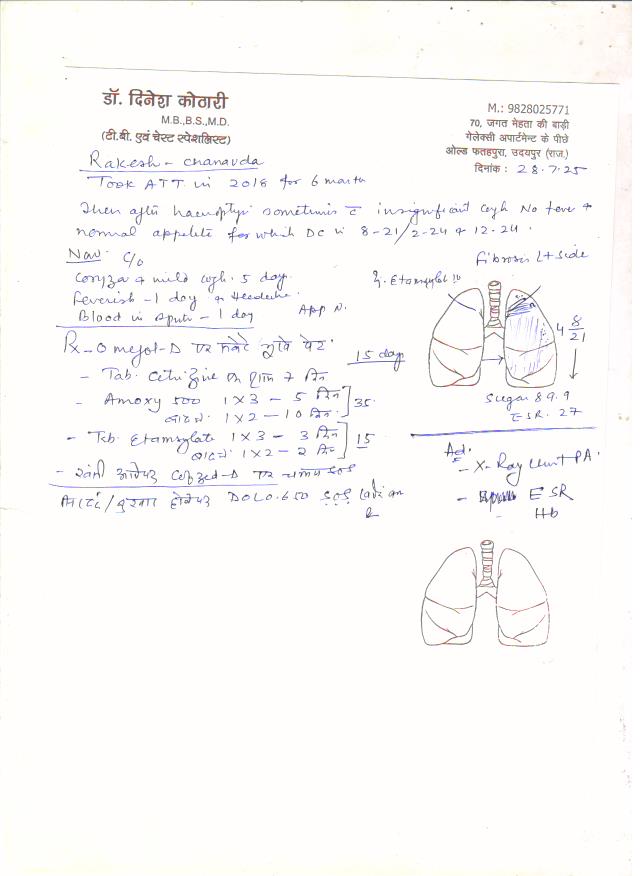 डॉ. दिनेश कोठारी
M.B.,B.S.,M.D.
(टी.बी. एवं चेस्ट स्पेशलिस्ट)
M.: 9828025771
70, जगत मेहता की बाड़ी
गेलेक्सी अपार्टमेन्ट के पीछे
ओल्ड फतहपुरा, उदयपुर (राज.)
दिनांक : 28.7.25
Rakesh - Chanavda
Took ATT in 2018 for 6 months
Then after haemoptysis sometimes c̄ insignificant cough No fever &
normal appetite for which DC in 8-21/2-24 & 12-24.
Now c/o
Coryza & mild cough. 5 day
Feverish - 1 day & Headache
Blood in sputum - 1 day App N.
Fibrosis Lt side
Etamsylate
8/21
Sugar 89.9
ESR. 27
Rx - Omejol-D एक सवेरे भूखे पेट. 15 day
- Tab. Cetrizine शाम 7 दिन
- Amoxy 500 1×3 - 5 दिन
बाद में 1×2 - 10 दिन 35
- Tab. Etamsylate 1×3 - 3 दिन
बाद में 1×2 - 2 दिन 15
- खांसी आने पर -D एक चम्मच SOS
/बुखार होने पर DOLO.650 SOS
Ad.
- X-Ray Chest PA
- ESR
- Hb